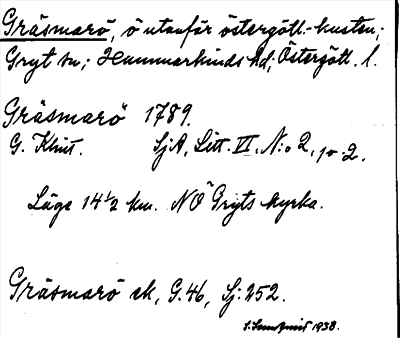 Gräsmarö, ö utanför östergötl.-kusten;
Gryt sn; Hammarkinds hd; Östergötl. l.
Gräsmarö 1789.
G. Klint. SjA, Litt. VI. N:o 2, 10-2.
Läge 14½ km. NÖ Gryts kyrka.
Gräsmarö ek, G.46, Sj:252.
1938.